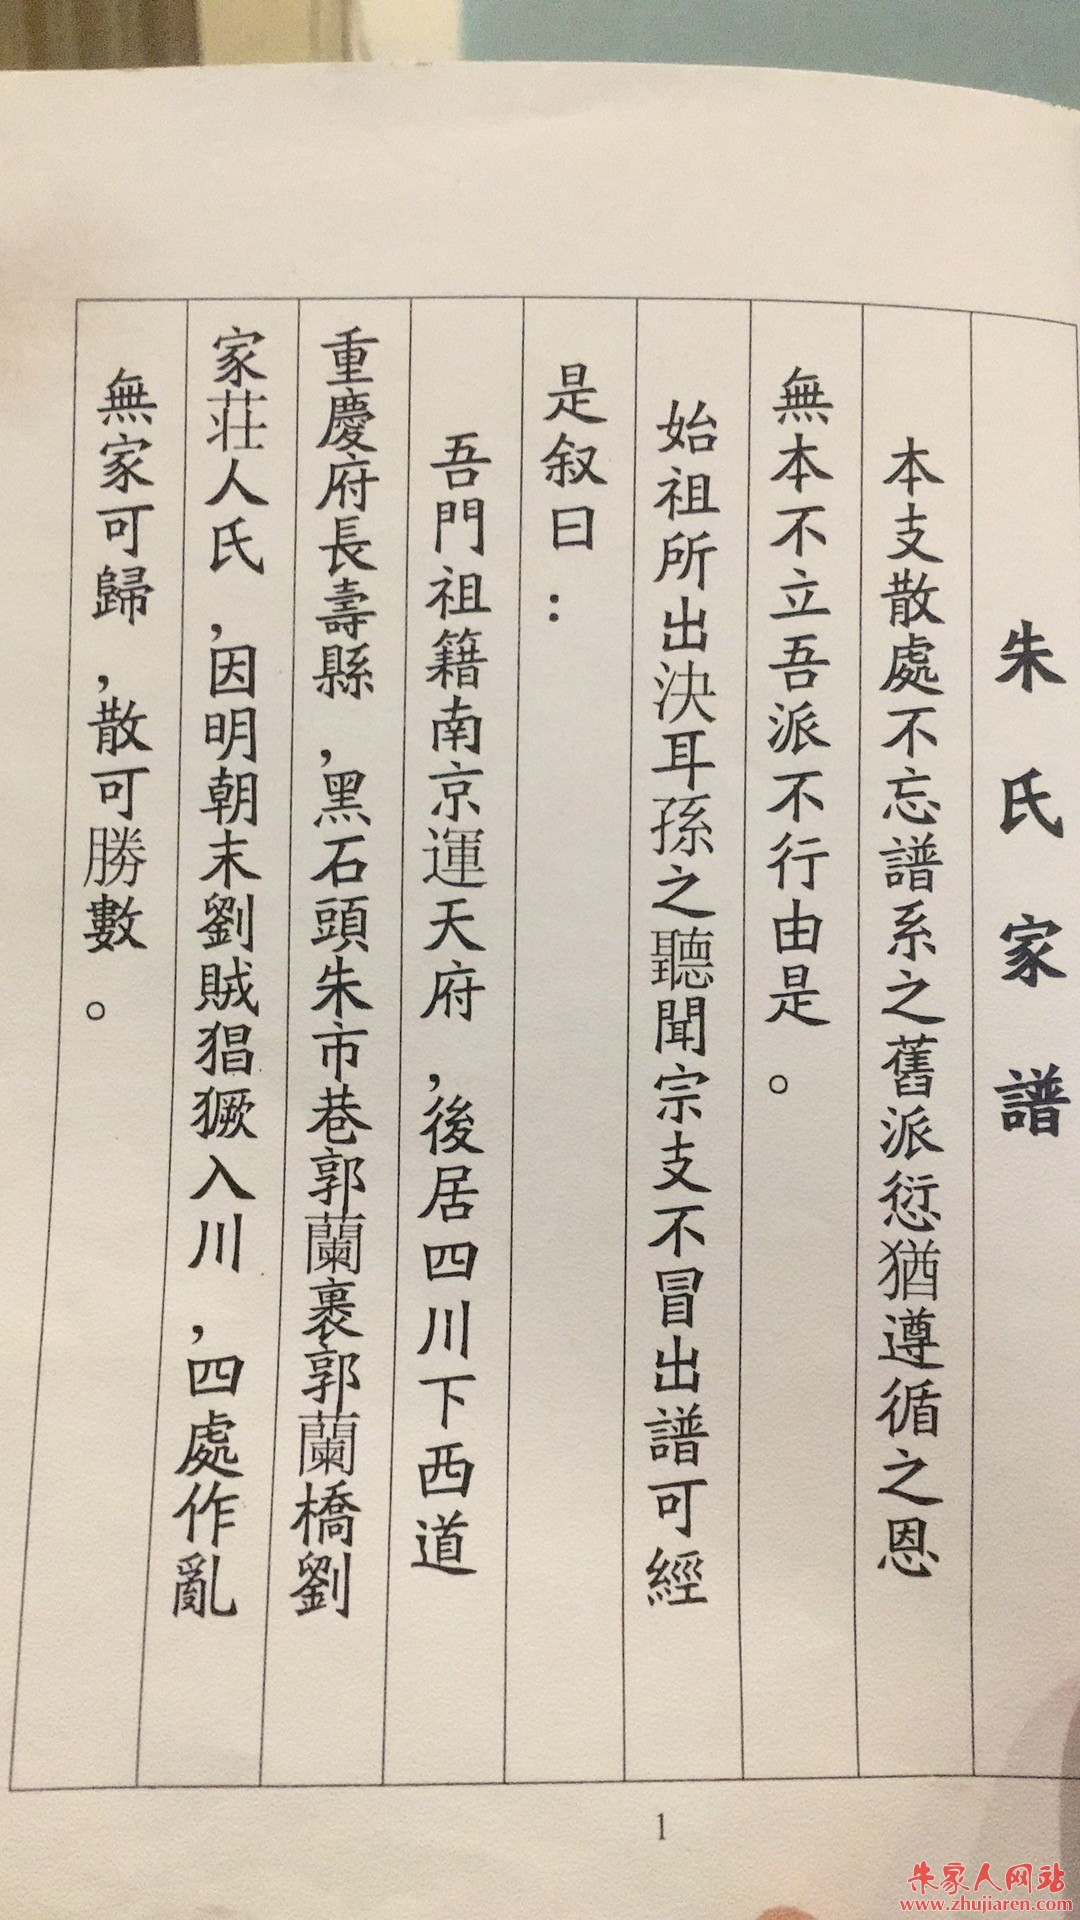 朱氏家譜
本支散處不忘譜系之舊派愆猶遵循之恩
無本不立吾派不行由是。
始祖所出決耳孫之聽聞宗支不冒出譜可經
是叙曰：
吾門祖籍南京運天府，後居四川下西道
重慶府長壽縣，黑石頭朱市巷郭蘭裏郭蘭橋劉
家莊人氏，因明朝末劉賊猖獗入川，四處作亂
無家可歸，散可勝數。
1
朱家人网站
www.zhujiaren.com